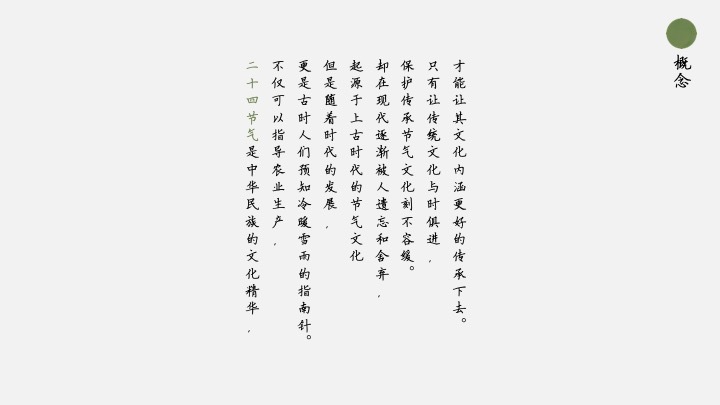 概念
二十四节气是中华民族的文化精华，
不仅可以指导农业生产，
更是古时人们预知冷暖雪雨的指南针。
但是随着时代的发展，
起源于上古时代的节气文化
却在现代逐渐被人遗忘和舍弃，
保护传承节气文化刻不容缓。
只有让传统文化与时俱进，
才能让其文化内涵更好的传承下去。